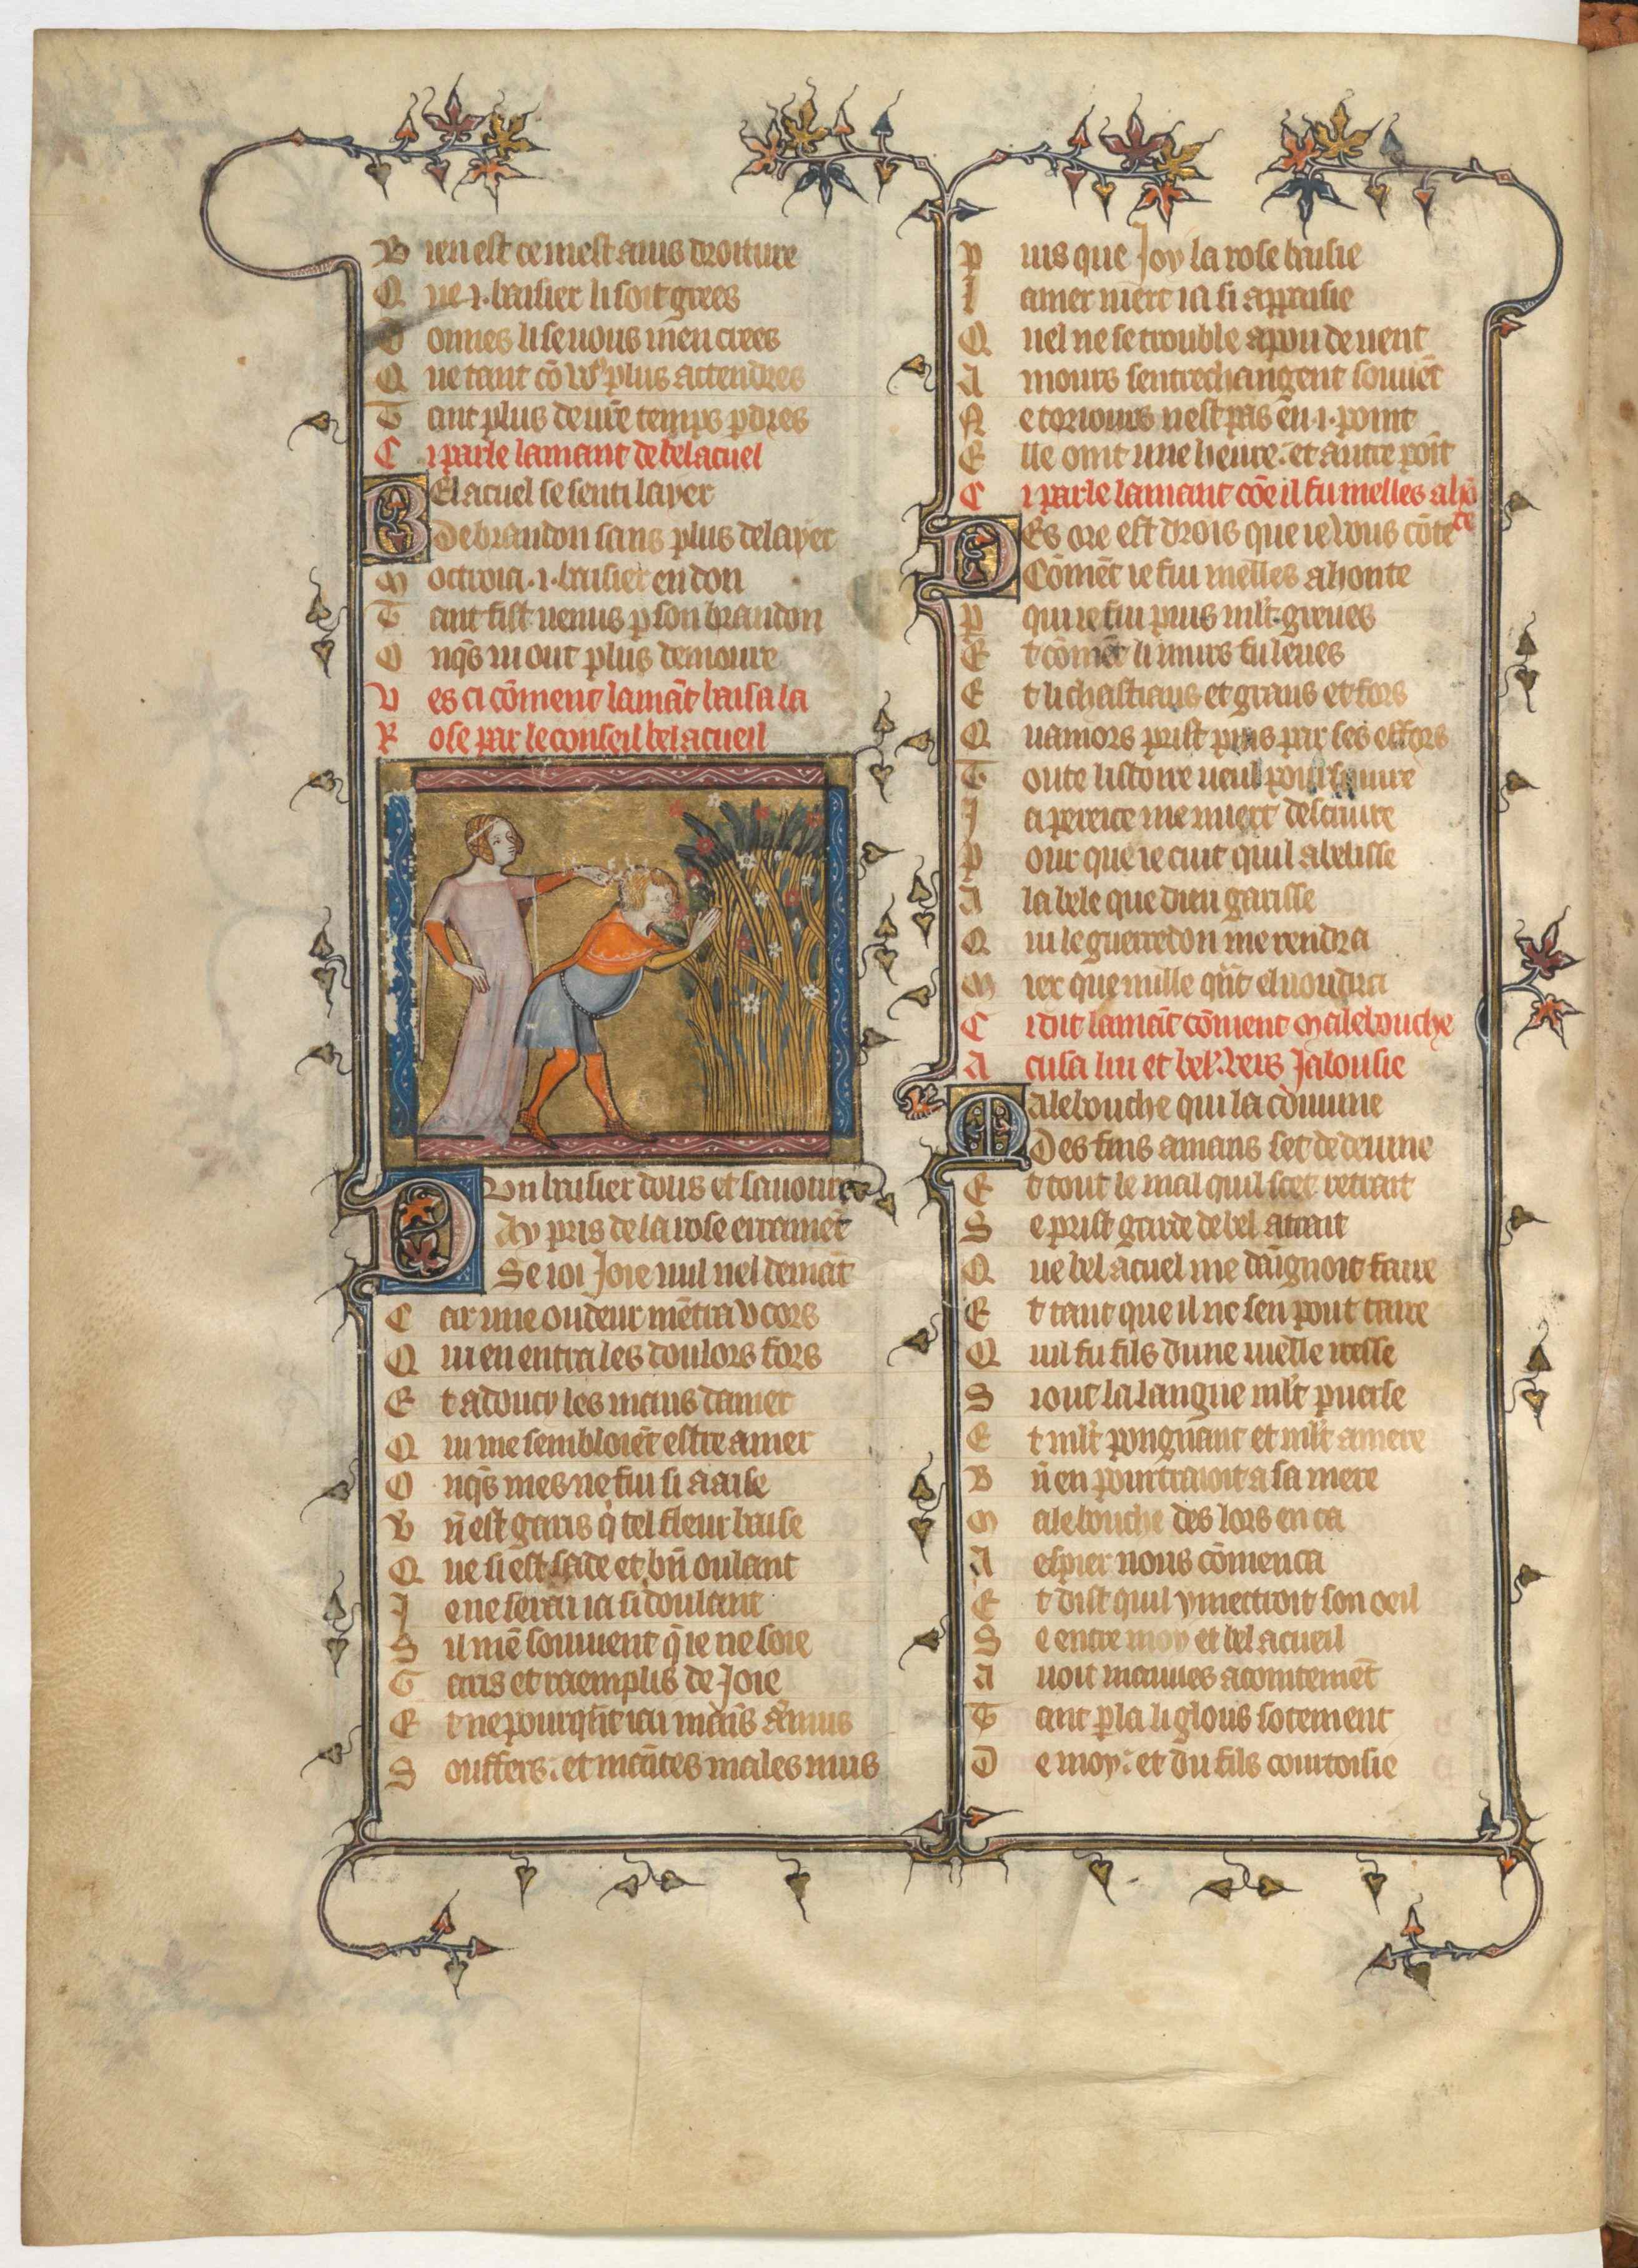 B ien est ce mest auis droiture
Q ue .i. baisier li soit grees
D onnes li se vous men crees
Q ue tant cō vꝰ plus attendres
T ant plus de vr̄e temps pdres
C i parle lamant de belacuel
BEl acuel se senti layer
De brandon sans plus delayer
M octroia .i. baisier en don
T ant fist venus p son brandon
O nq̄s ni out plus demoure
V es ci cōment lamāt baisa la
R ose par le conseil bel acueil
DVn baisier dous et sauoure
Ay pris de la rose erramēt
Se ioi Joie nul nel demāt
C ar une oudeur mētra v cors
Q ui en entra les doulors fors
E t adoucy les maus damer
Q ui me sembloiēt estre amer
O nq̄s mes ne fui si a aise
B n̄ est garis q̄ tel fleur baise
Q ue si est sade et bn̄ oulant
J e ne serai ia si doulant
S il mē souuent q̄ ie ne soie
G aris et raemplis de Joie
E t ne pourq̄nt iai mains anuis
S ouffers. et maītes males nuis
P uis que Joy la rose baisie
I amer niert ia si appaisie
Q uel ne se trouble a pou de uent
A mours sentrechangent souuēt
N e toriours nest pas en .i. point
E lle oint une heure. et autre poīt
C i parle lamant cōe il fu melles a hō
te
DEs ore est drois que ie vous cōte
Cōmēt ie fui melles a honte
P qui ie fui puis ml̄t greues
E t cōmēt li murs fu leues
E t li chastiaus et grans et fors
Q uamors prist puis par ses effors
T oute listoire ueul poursuiure
J a perece me niert descriure
P our que ie cuit quil abelisse
A la bele que dieu garisse
Q ui le guerredon me rendra
M iex que mille qn̄t el uoudra
C i dit lamāt cōment Malebouche
A cusa lui et bel. vers Jalousie
MAlebouche qui la couuine
Des fins amans set et deuine
E t tout le mal quil scet retrait
S e prist garde de bel atrait
Q ue bel acuel me daignoit faire
E t tant que il ne sen pout taire
Q uil fu fils dune uielle iresse
S i out la langue ml̄t puerse
E t ml̄t pongnant et ml̄t amere
B n̄ en pourtraioit a sa mere
M alebouche des lors en ca
A espier nous cōmenca
E t dist quil y mettroit son oeil
S e entre moy et bel acueil
A uoit mauues acointemēt
T ant pla li glous sotement
D e moy. et du fils courtoisie